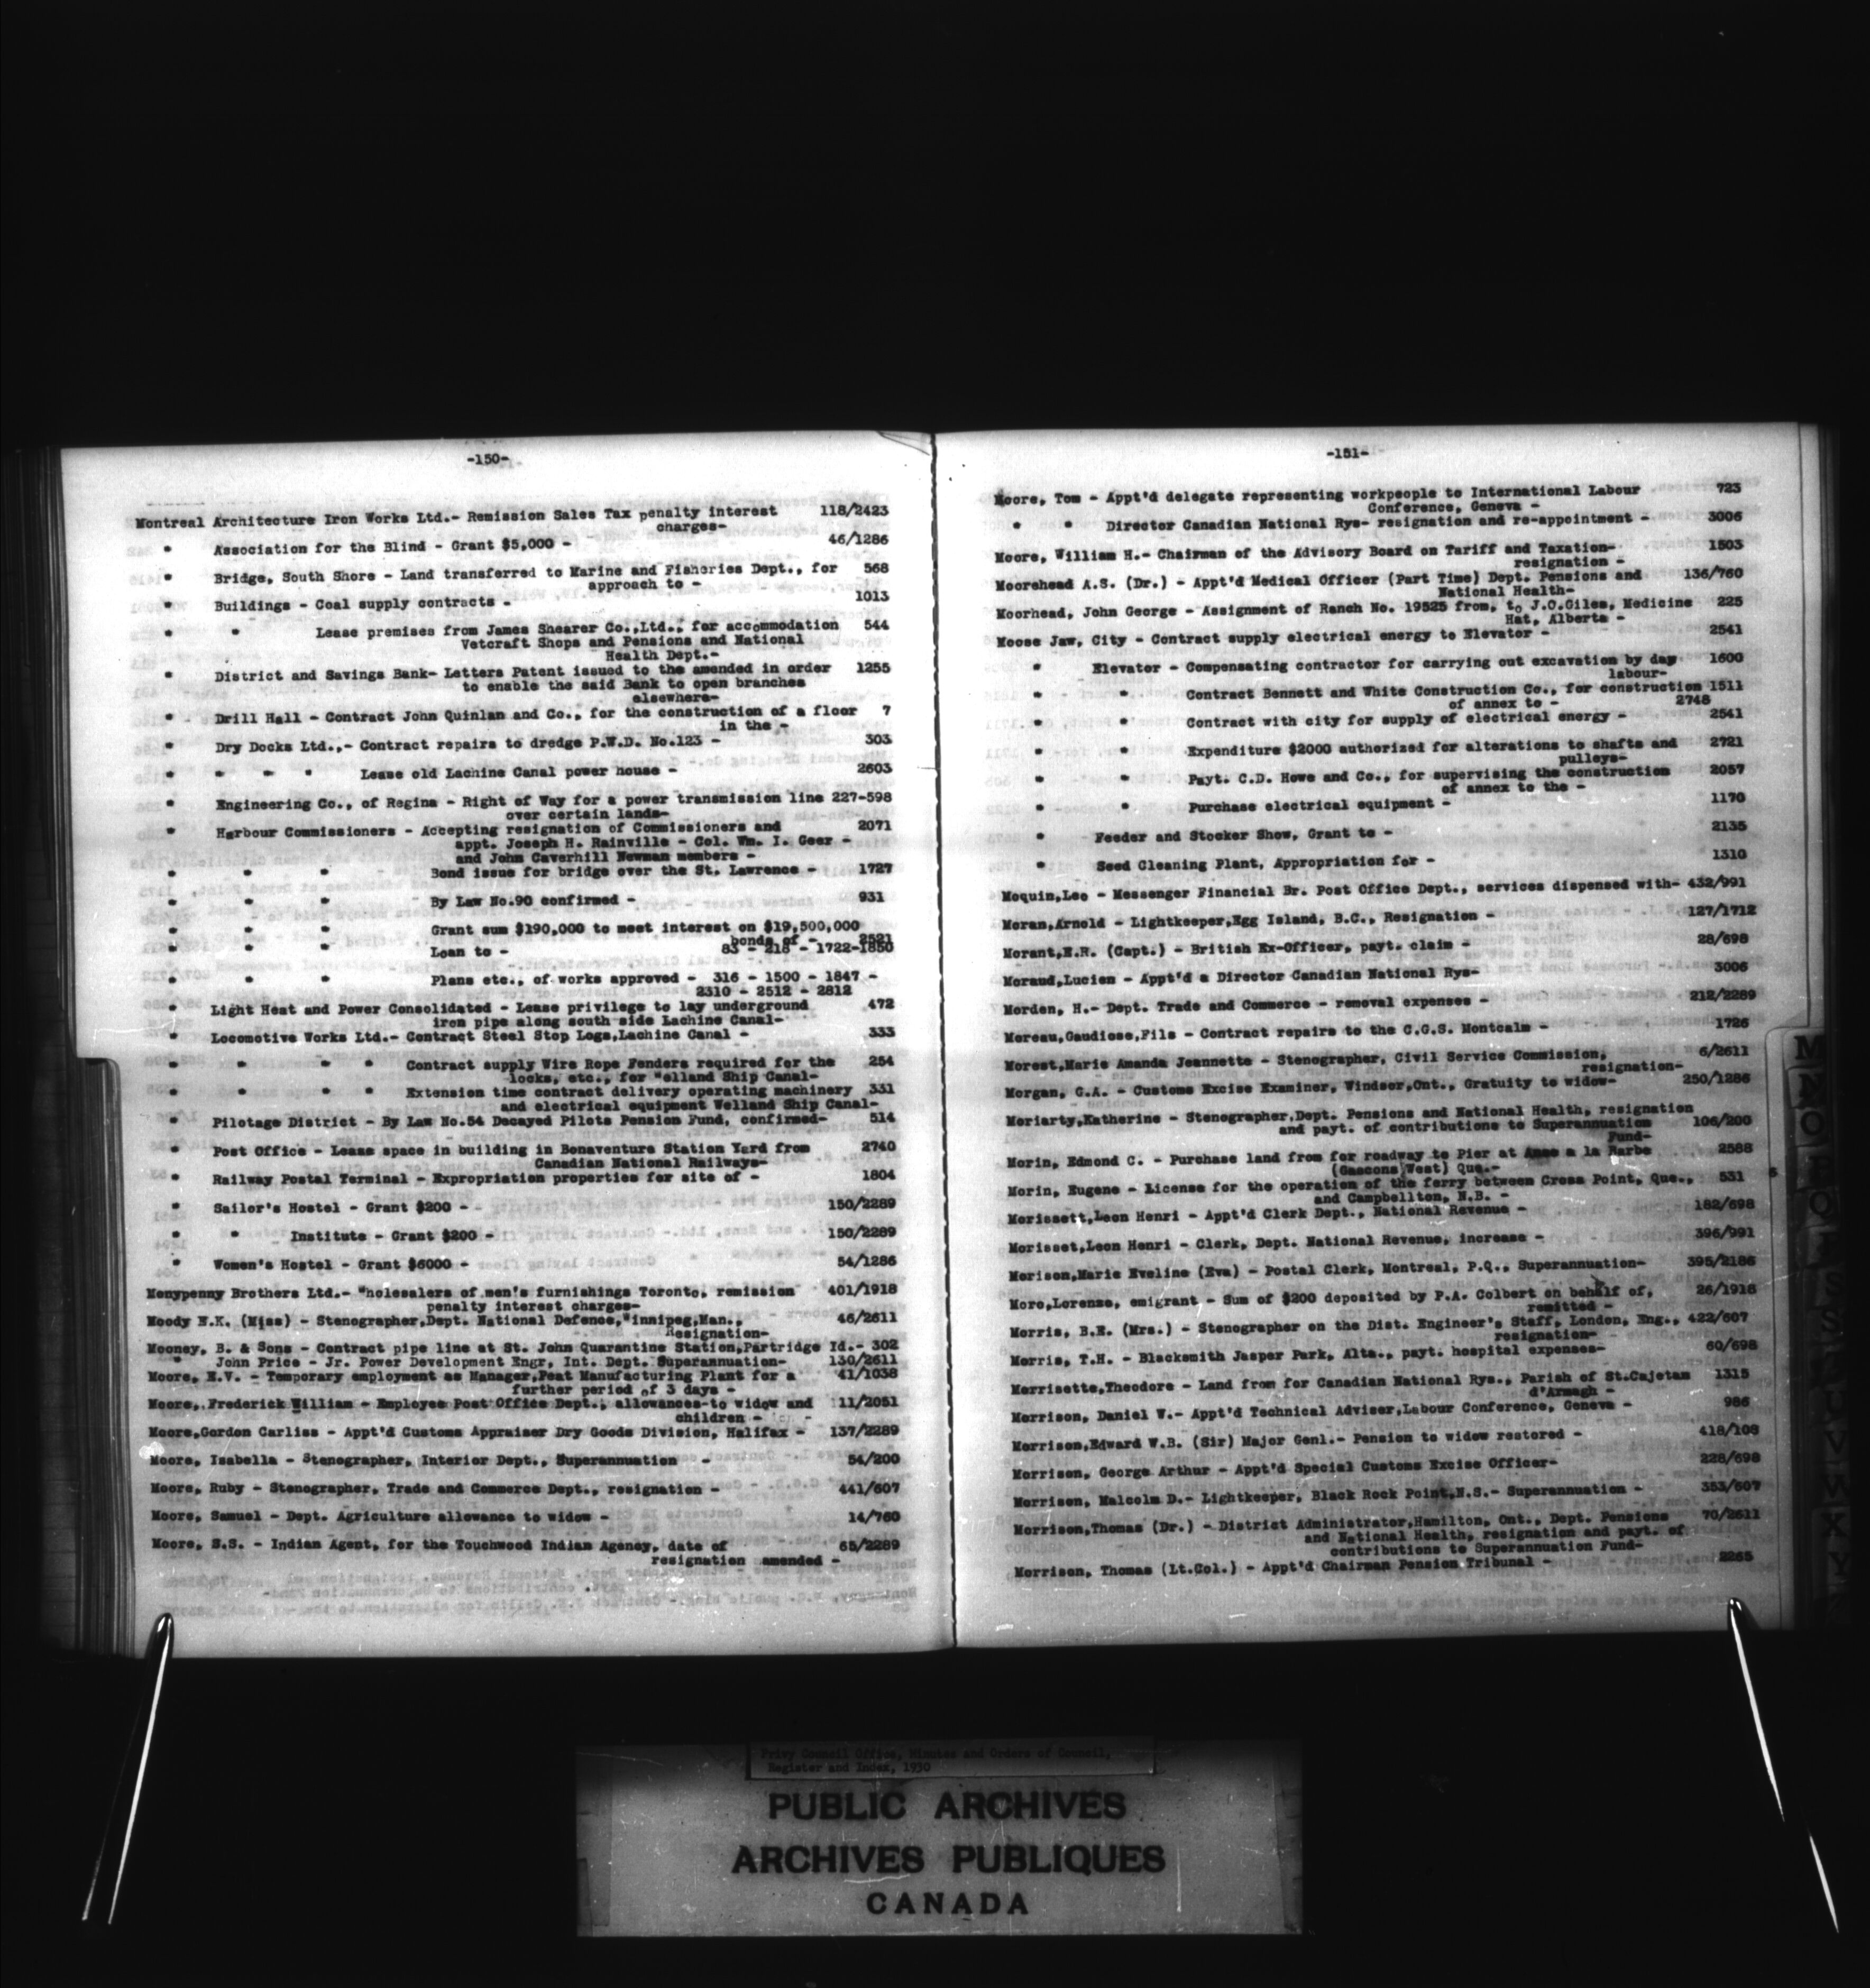 -150-
Montreal Architecture Iron Works Ltd.- Remission Sales Tax penalty interest 118/2423
charges-
" Association for the Blind - Grant $5,000 - 46/1286
" Bridge, South Shore - Land transferred to Marine and Fisheries Dept., for 568
approach to -
" Buildings - Coal supply contracts - 1013
" " Lease premises from James Shearer Co.,Ltd., for accommodation 544
Vetcraft Shops and Pensions and National
Health Dept.-
" District and Savings Bank- Letters Patent issued to the amended in order 1255
to enable the said Bank to open branches
elsewhere-
" Drill Hall - Contract John Quinlan and Co., for the construction of a floor 7
in the -
" Dry Docks Ltd.,- Contract repairs to dredge P.W.D. No.123 - 303
" " " " Lease old Lachine Canal power house - 2603
" Engineering Co., of Regina - Right of Way for a power transmission line 227-598
over certain lands-
" Harbour Commissioners - Accepting resignation of Commissioners and 2071
appt. Joseph H. Rainville - Col. Wm. I. Geer -
and John Caverhill Newman members -
" " " Bond issue for bridge over the St. Lawrence - 1727
" " " By Law No.90 confirmed - 931
" " " Grant sum $190,000 to meet interest on $19,500,000
bonds of - 2521
" " " Loan to - 83 - 218 - 1722-1850
" " " Plans etc., of works approved - 316 - 1500 - 1847 -
2310 - 2512 - 2812
" Light Heat and Power Consolidated - Lease privilege to lay underground 472
iron pipe along south side Lachine Canal-
" Locomotive Works Ltd.- Contract Steel Stop Logs,Lachine Canal - 333
" " " " Contract supply Wire Rope Fenders required for the 254
locks, etc., for "elland Ship Canal-
" " " " Extension time contract delivery operating machinery 331
and electrical equipment Welland Ship Canal-
" Pilotage District - By Law No.54 Decayed Pilots Pension Fund, confirmed- 514
" Post Office - Lease space in building in Bonaventure Station Yard from 2740
Canadian National Railways-
" Railway Postal Terminal - Expropriation properties for site of - 1804
" Sailor's Hostel - Grant $200 - 150/2289
" " Institute - Grant $200 - 150/2289
" Women's Hostel - Grant $6000 - 54/1286
Monypenny Brothers Ltd.- "holesalers of men's furnishings Toronto, remission 401/1918
penalty interest charges-
Moody N.K. (Miss) - Stenographer,Dept. National Defence,"innipeg,Man., 46/2611
Resignation-
Mooney, B. & Sons - Contract pipe line at St. John Quarantine Station,Partridge Id.- 302
" John Price - Jr. Power Development Engr, Int. Dept. Superannuation- 130/2611
Moore, E.V. - Temporary employment as Manager,Peat Manufacturing Plant for a 41/1038
further period of 3 days -
Moore,.Frederick William - Employee Post Office Dept., allowances-to widow and 11/2051
children -
Moore,Gordon Carliss - Appt'd Customs Appraiser Dry Goods Division, Halifax - 137/2289
Moore, Isabella - Stenographer, Interior Dept., Superannuation - 54/200
Moore, Ruby - Stenographer, Trade and Commerce Dept., resignation - 441/607
Moore, Samuel - Dept. Agriculture allowance to widow - 14/760
Moore, S.S. - Indian Agent, for the Touchwood Indian Agency, date of 65/2289
resignation amended -
-151-
Moore, Tom - Appt'd delegate representing workpeople to International Labour 723
Conference, Geneva -
" " Director Canadian National Rys- resignation and re-appointment - 3006
Moore, William H.- Chairman of the Advisory Board on Tariff and Taxation- 1503
resignation -
Moorehead A.S. (Dr.) - Appt'd Medical Officer (Part Time) Dept. Pensions and 136/760
National Health-
Moorhead, John George - Assignment of Ranch No. 19525 from, to J.O.Giles, Medicine 225
Hat, Alberta -
Moose Jaw, City - Contract supply electrical energy to Elevator - 2541
" Elevator - Compensating contractor for carrying out excavation by day 1600
labour-
" " Contract Bennett and White Construction Co., for construction 1511
of annex to - 2748
" " Contract with city for supply of electrical energy - 2541
" " Expenditure $2000 authorized for alterations to shafts and 2721
pulleys-
" " Payt. C.D. Howe and Co., for supervising the construction 2057
of annex to the -
" " Purchase electrical equipment - 1170
" Feeder and Stocker Show, Grant to - 2135
" Seed Cleaning Plant, Appropriation for - 1310
Moquin,Leo - Messenger Financial Br. Post Office Dept., services dispensed with- 432/991
Moran,Arnold - Lightkeeper,Egg Island, B.C., Resignation - 127/1712
Morant,N.R. (Capt.) - British Ex-Officer, payt. claim - 28/698
Moraud,Lucien - Appt'd a Director Canadian National Rys- 3006
Morden, H.- Dept. Trade and Commerce - removal expenses - 212/2289
Moreau,Gaudiose,Fils - Contract repairs to the C.G.S. Montcalm - 1726
Morest,Marie Amanda Jeannette - Stenographer, Civil Service Commission, 6/2611
resignation-
Morgan, G.A. - Customs Excise Examiner, Windsor,Ont., Gratuity to widow- 250/1286
Moriarty,Katherine - Stenographer,Dept. Pensions and National Health, resignation
and payt. of contributions to Superannuation 106/200
Fund-
Morin, Edmond C. - Purchase land from for roadway to Pier at Anse a la Barbe 2588
(Gascons West) Que.-
Morin, Eugene - License for the operation of the ferry between Cross Point, Que., 531
and Campbellton, N.B. -
Morissett,Leon Henri - Appt'd Clerk Dept., National Revenue - 182/698
Morisset,Leon Henri - Clerk, Dept. National Revenue, increase - 396/991
Morison,Marie Eveline (Eva) - Postal Clerk, Montreal, P.Q., Superannuation- 395/2186
Moro,Lorenzo, emigrant - Sum of $200 deposited by P.A. Colbert on behalf of, 26/1918
remitted -
Morris, B.E. (Mrs.) - Stenographer on the Dist. Engineer's Staff, London, Eng., 422/607
resignation-
Morris, T.H. - Blacksmith Jasper Park, Alta., payt. hospital expenses- 60/698
Morrisette,Theodore - Land from for Canadian National Rys., Parish of St.Cajetan 1315
d'Armagh -
Morrison, Daniel W.- Appt'd Technical Adviser,Labour Conference, Geneva - 986
Morrison,Edward W.B. (Sir) Major Genl.- Pension to widow restored - 418/108
Morrison, George Arthur - Appt'd Special Customs Excise Officer- 228/698
Morrison, Malcolm D.- Lightkeeper, Black Rock Point,N.S.- Superannuation - 353/607
Morrison,Thomas (Dr.) - District Administrator,Hamilton, Ont., Dept. Pensions 70/2611
and National Health, resignation and payt. of
contributions to Superannuation Fund-
Morrison, Thomas (Lt.Col.) - Appt'd Chairman Pension Tribunal - 2265
Privy Council Office, Minutes and Orders of Council,
Register and Index, 1930
PUBLIC ARCHIVES
ARCHIVES PUBLIQUES
CANADA